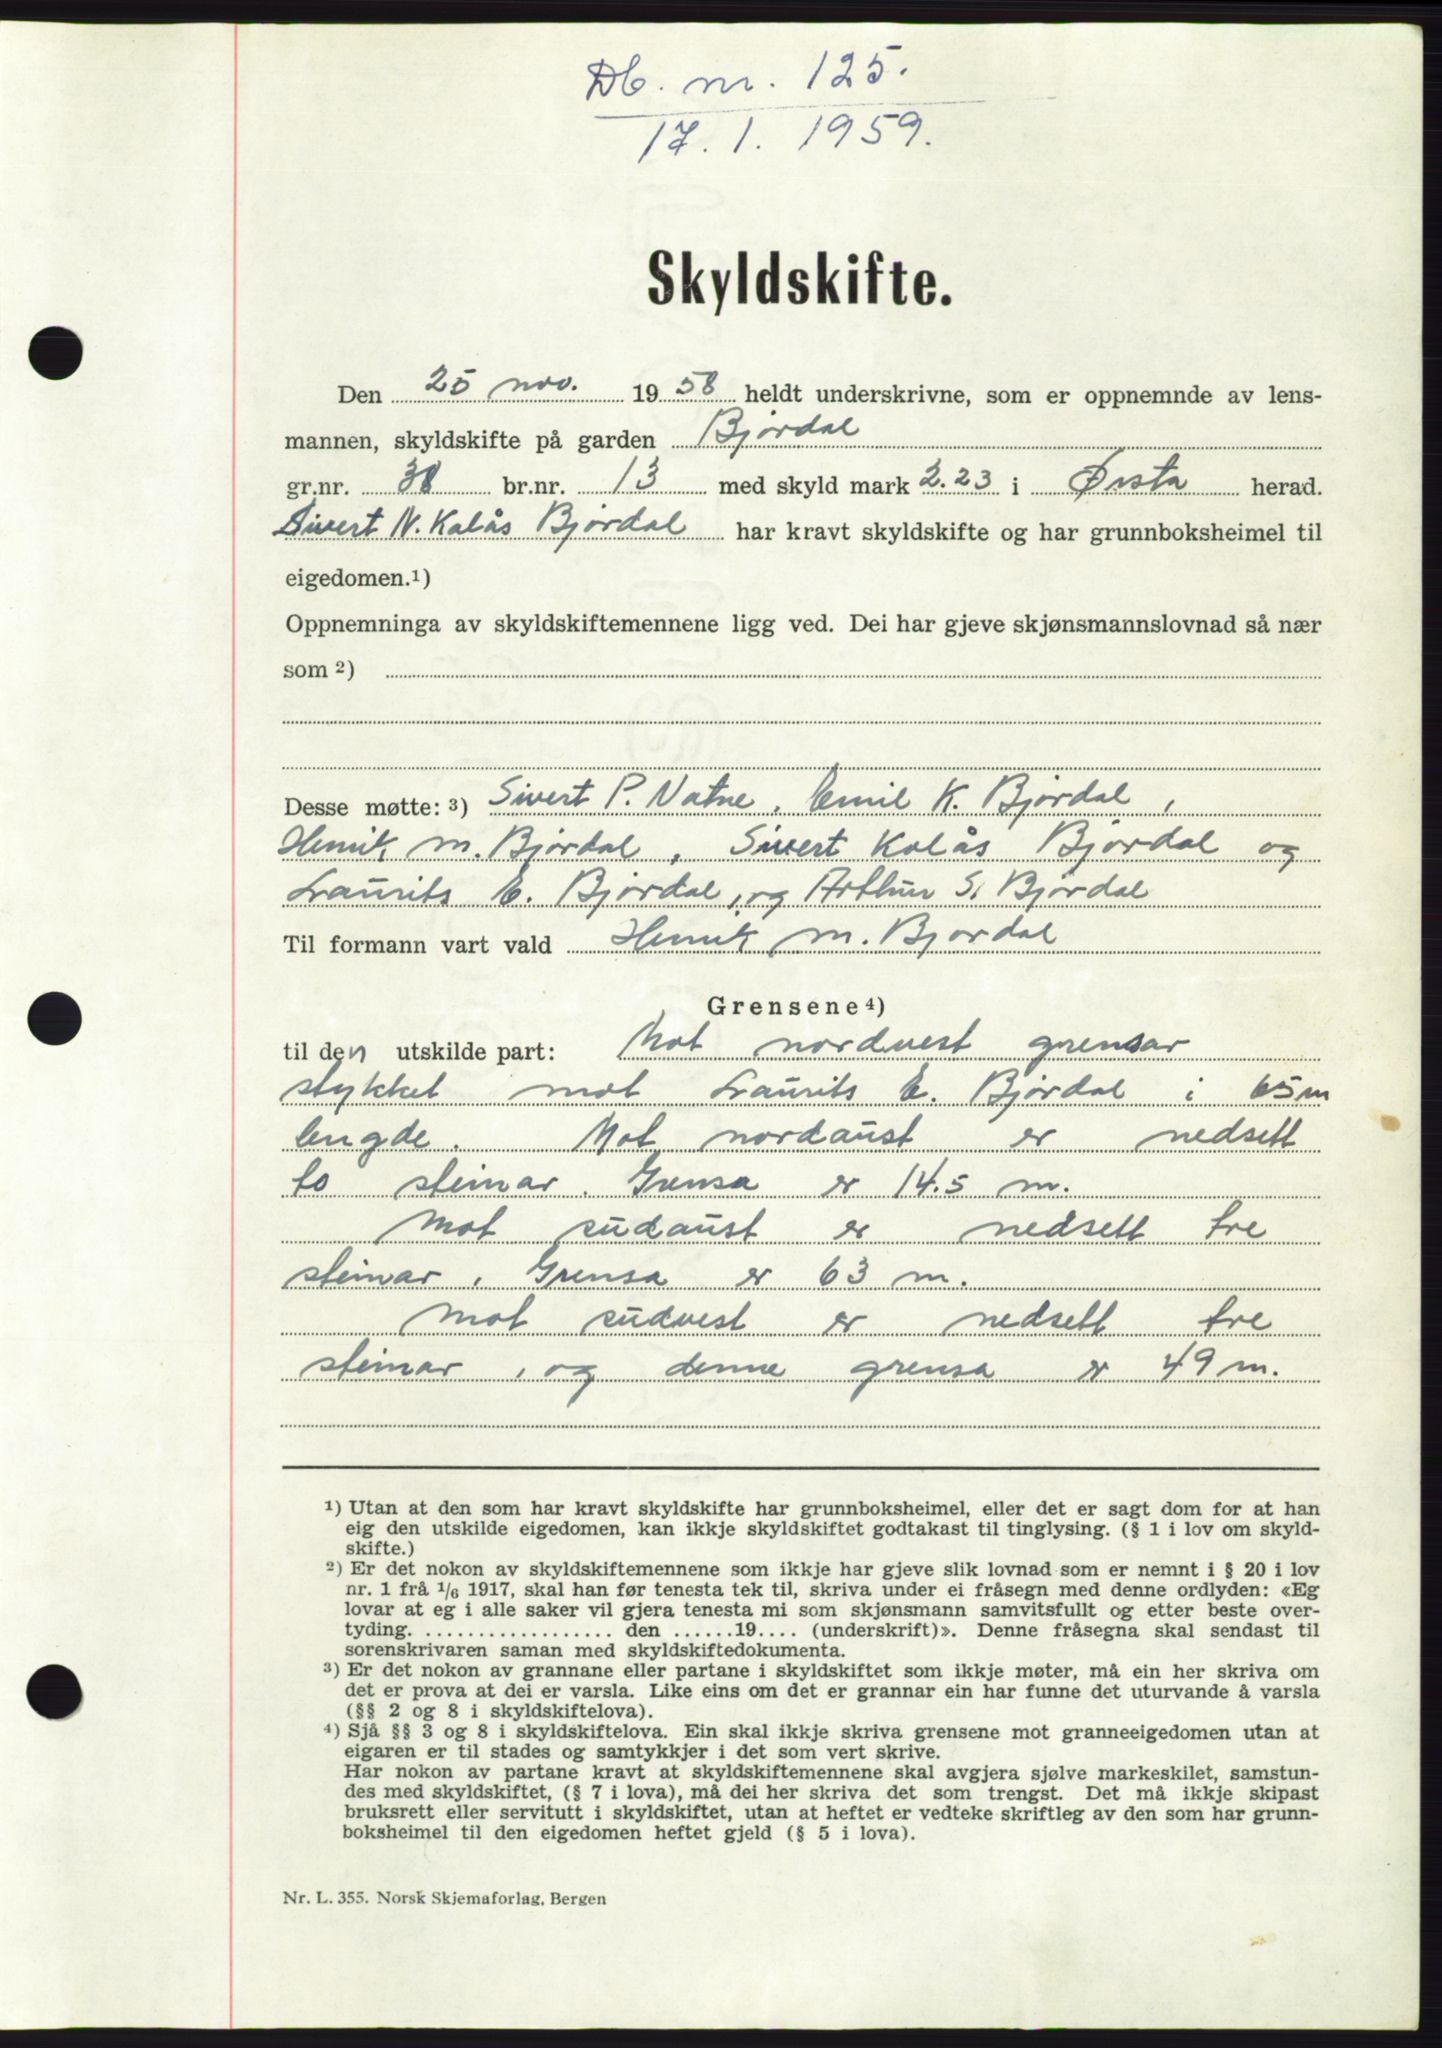 Db. nr. 125.
17.1. 1959.
Skyldskifte.
Den 25 nov. 1958 heldt underskrivne, som er oppnemnde av lens-
mannen, skyldskifte på garden Bjørdal
gr.nr. 38 br.nr. 13 med skyld mark 2.23 i Ørsta herad.
Sivert N. Kolås Bjørdal har kravt skyldskifte og har grunnboksheimel til
eigedomen.1)
Oppnemninga av skyldskiftemennene ligg ved. Dei har gjeve skjønsmannslovnad så nær
som 2)
Desse møtte: 3) Sivert P. Natne, Emil K. Bjørdal,
Henrik M. Bjørdal, Sivert Kolås Bjørdal og
Laurits E. Bjørdal, og Arthur S. Bjørdal
Til formann vart vald Henrik M. Bjørdal
Grensene 4)
til den utskilde part: Mot nordvest grensar
stykket mot Laurits E. Bjørdal i 65 m
lengde. Mot nordaust er nedsett
to steinar. Grensa er 14.5 m.
Mot sudaust er nedsett tre
steinar, Grensa er 63 m.
Mot sudvest er nedsett tre
steinar, og denne grensa er 49 m.
1) Utan at den som har kravt skyldskifte har grunnboksheimel, eller det er sagt dom for at han
eig den utskilde eigedomen, kan ikkje skyldskiftet godtakast til tinglysing. (§ 1 i lov om skyld-
skifte.)
2) Er det nokon av skyldskiftemennene som ikkje har gjeve slik lovnad som er nemnt i § 20 i lov
nr. 1 frå 1/6 1917, skal han før tenesta tek til, skriva under ei fråsegn med denne ordlyden: «Eg
lovar at eg i alle saker vil gjera tenesta mi som skjønsmann samvitsfullt og etter beste over-
tyding. .................. den ......19.... (underskrift)». Denne fråsegna skal sendast til
sorenskrivaren saman med skyldskiftedokumenta.
3) Er det nokon av grannane eller partane i skyldskiftet som ikkje møter, må ein her skriva om
det er prova at dei er varsla. Like eins om det er grannar ein har funne det uturvande å varsla
(§§ 2 og 8 i skyldskiftelova).
4) Sjå §§ 3 og 8 i skyldskiftelova. Ein skal ikkje skriva grensene mot granneeigedomen utan at
eigaren er til stades og samtykkjer i det som vert skrive.
Har nokon av partane kravt at skyldskiftemennene skal avgjera sjølve markeskilet, samstun-
des med skyldskiftet, (§ 7 i lova), må dei her skriva det som trengst. Det må ikkje skipast
bruksrett eller servitutt i skyldskiftet, utan at heftet er vedteke skriftleg av den som har grunn-
boksheimel til den eigedomen heftet gjeld (§ 5 i lova).
Nr. L. 355. Norsk Skjemaforlag, Bergen